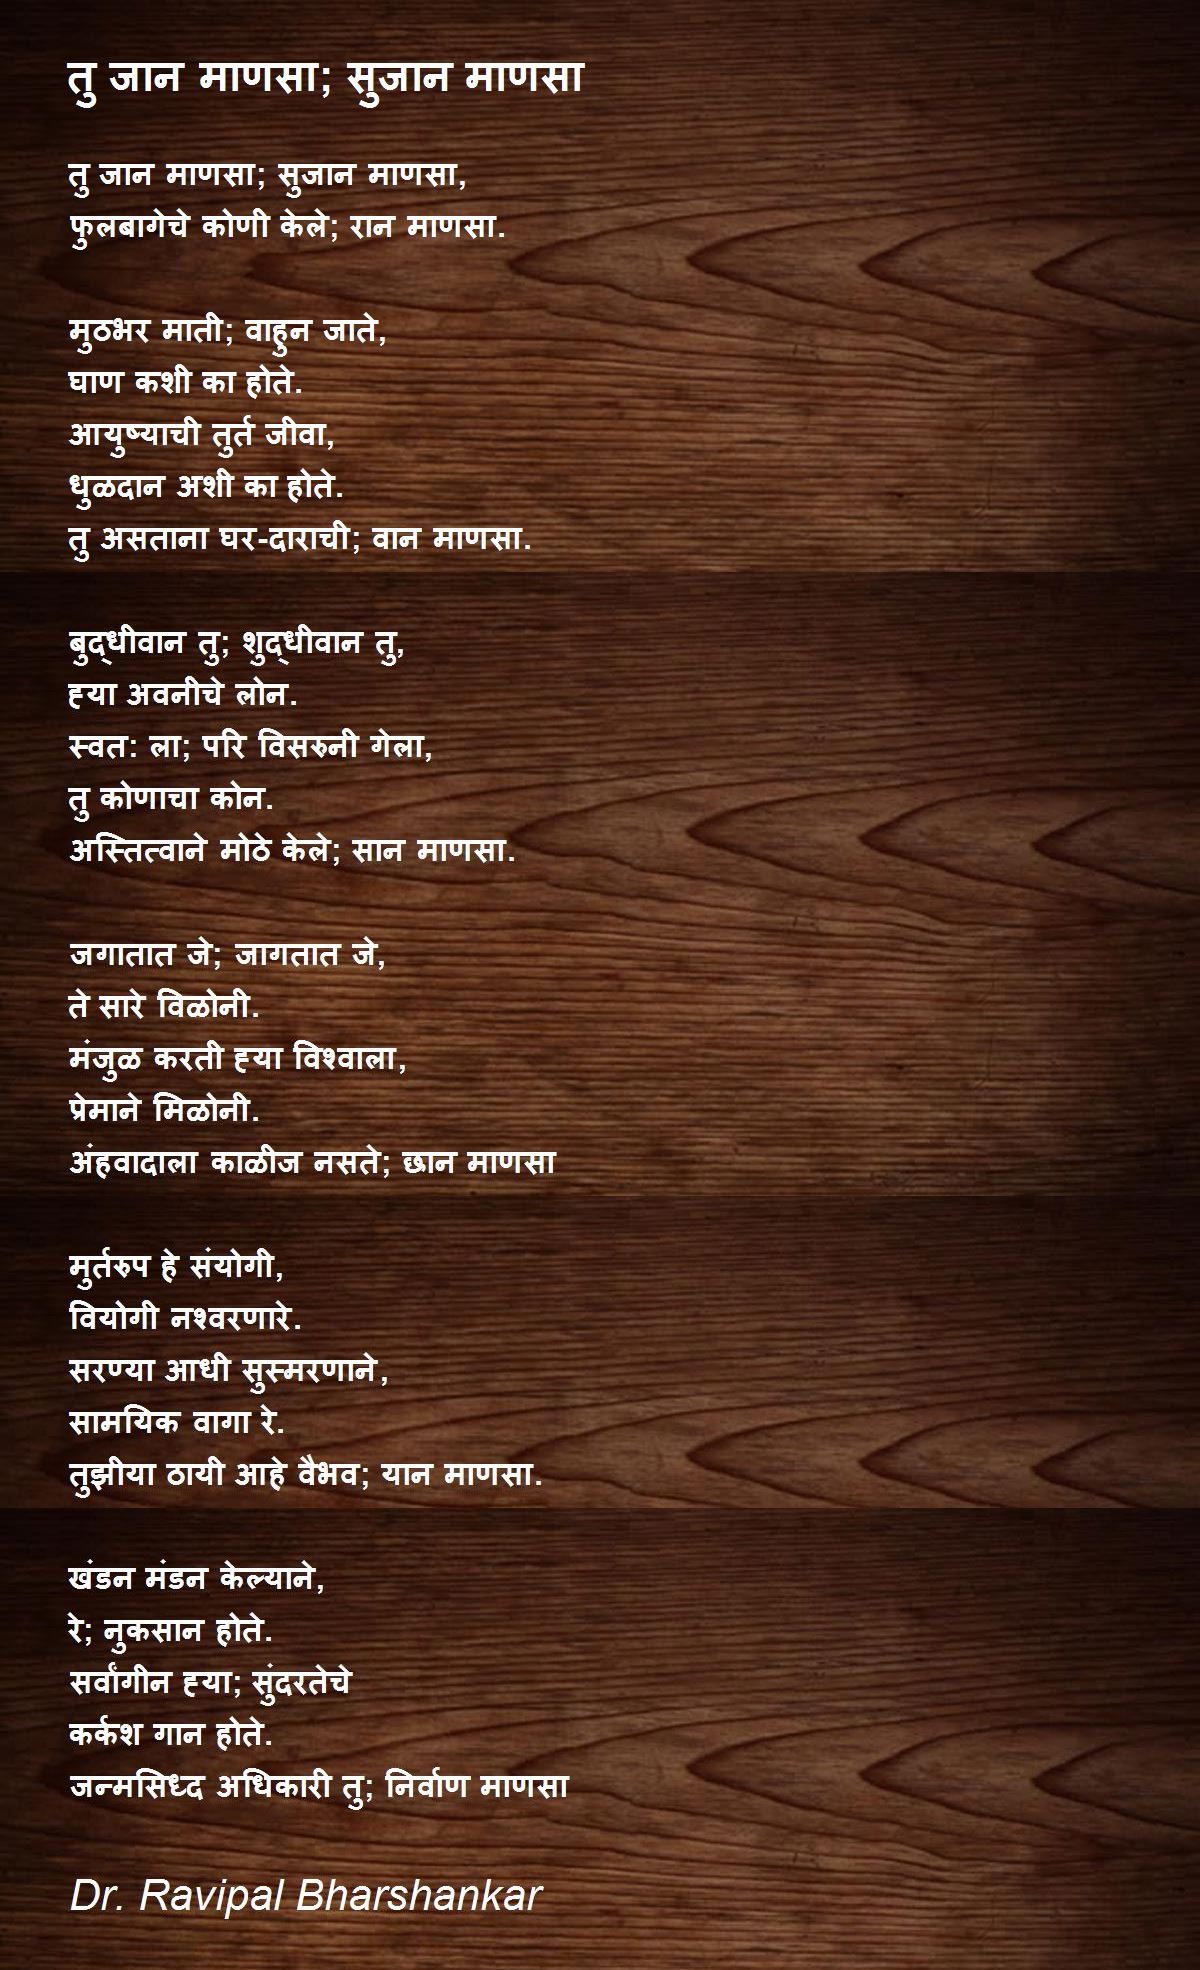 तु जान माणसा; सुजान माणसा
तु जान माणसा; सुजान माणसा,
फुलबागेचे कोणी केले; रान माणसा.
मुठभर माती; वाहुन जाते,
घाण कशी का होते.
आयुष्याची तुर्त जीवा,
धुळदान अशी का होते.
तु असताना घर-दाराची; वान माणसा.
बुद्धीवान तु; शुद्धीवान तु,
ह्या अवनीचे लोन.
स्वत: ला; परि विसरुनी गेला,
तु कोणाचा कोन.
अस्तित्वाने मोठे केले; सान माणसा.
जगातात जे; जागतात जे,
ते सारे विळोनी.
मंजुळ करती ह्या विश्वाला,
प्रेमाने मिळोनी.
अंहवादाला काळीज नसते; छान माणसा
मुर्तरुप हे संयोगी,
वियोगी नश्वरणारे.
सरण्या आधी सुस्मरणाने,
सामयिक वागा रे.
तुझीया ठायी आहे वैभव; यान माणसा.
खंडन मंडन केल्याने,
रे; नुकसान होते.
सर्वांगीन ह्या; सुंदरतेचे
कर्कश गान होते.
जन्मसिध्द अधिकारी तु; निर्वाण माणसा
Dr. Ravipal Bharshankar